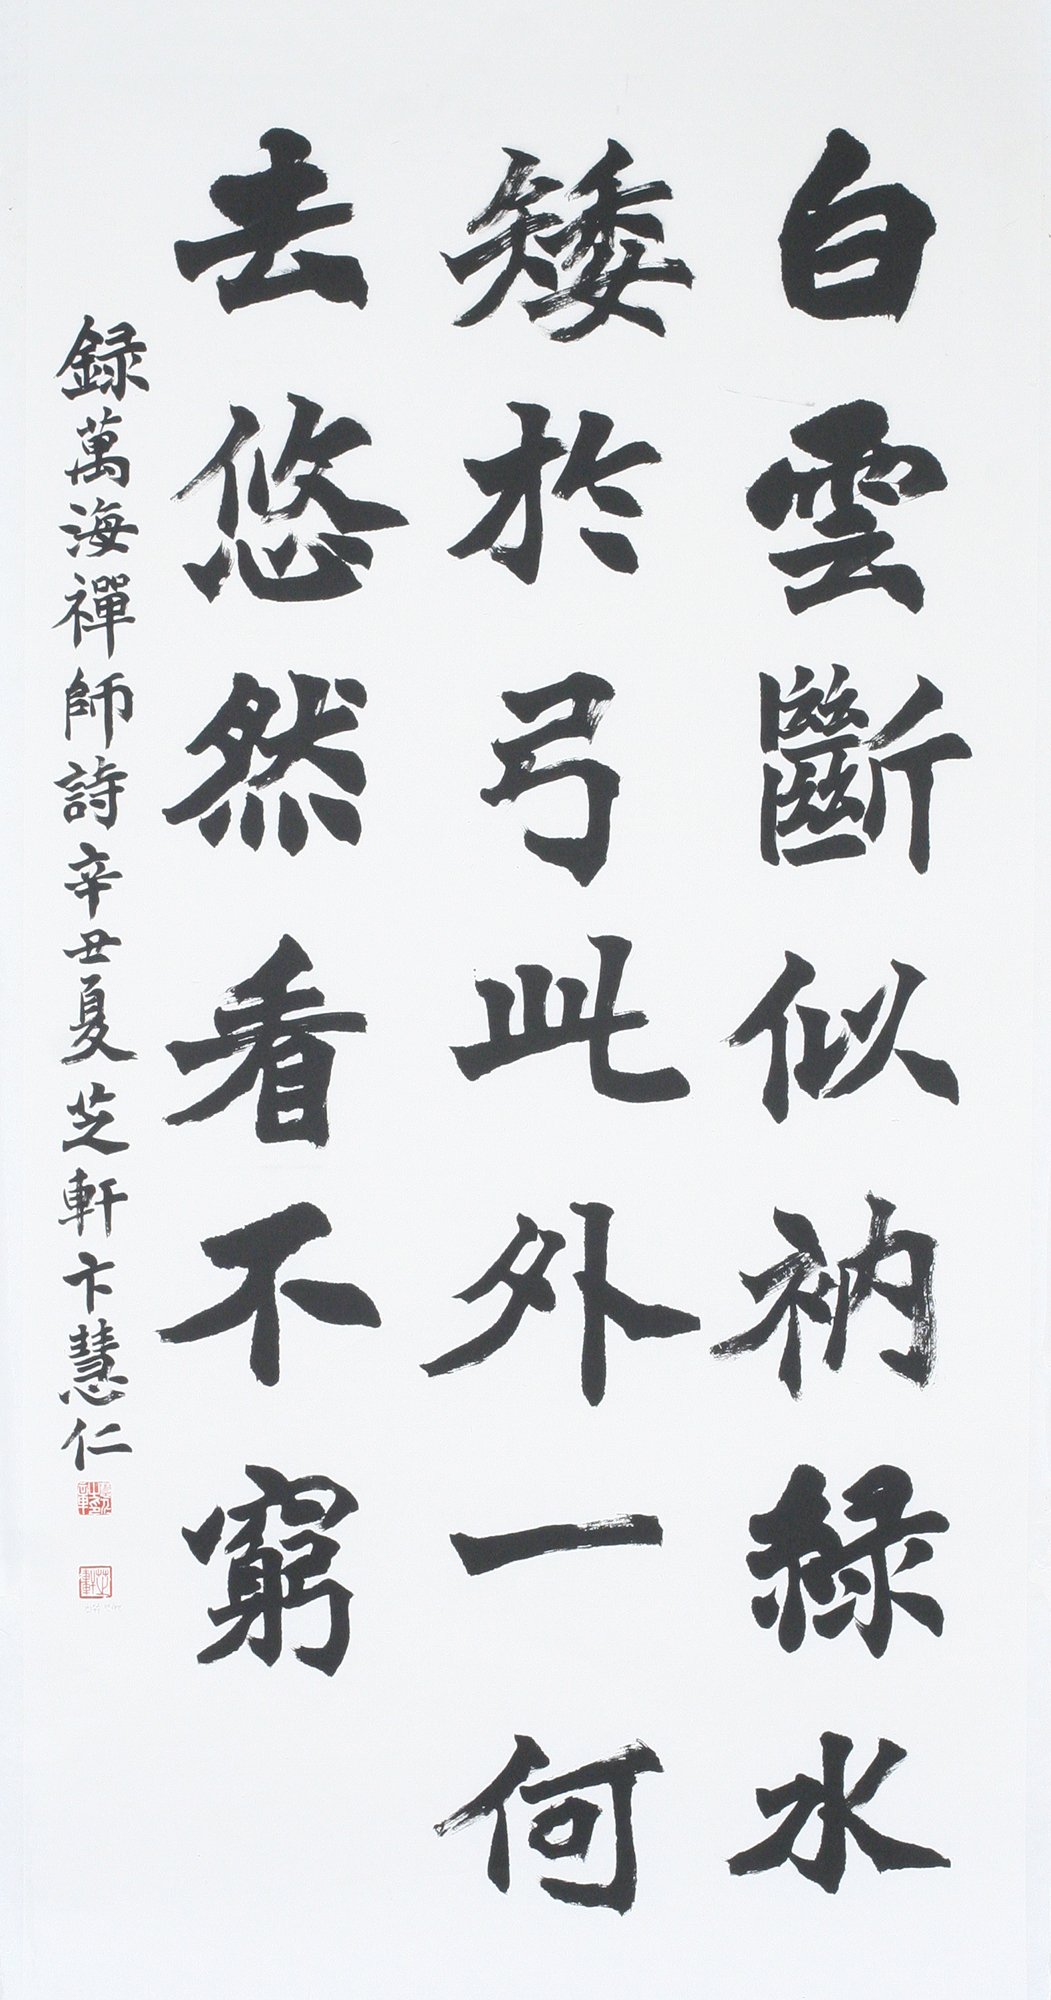 白雲斷似衲綠水
矮於弓此外一何
去悠然看不窮
録萬海禪師詩辛丑夏芝軒卞慧仁